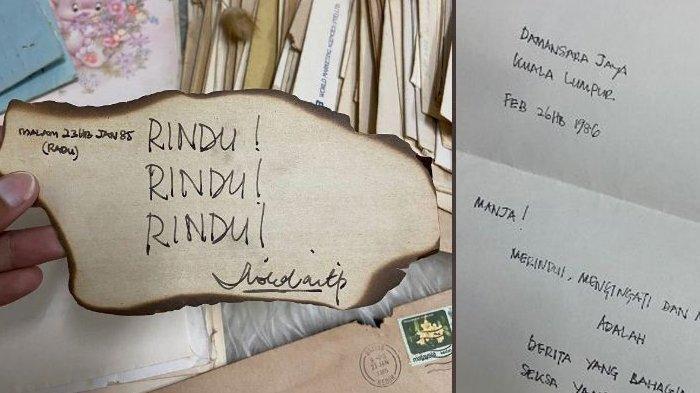 MALAM 23HB JAN 85
(RABU)
RINDU!
RINDU!
RINDU!
malaysia
DAMANSARA JAYA
KUALA LUMPUR
FEB 26HB 1986
MANJA!
MERINDUI, MENGINGATI DAN
ADALAH
BERITA YANG BAHAGIA
SEKSA YANG